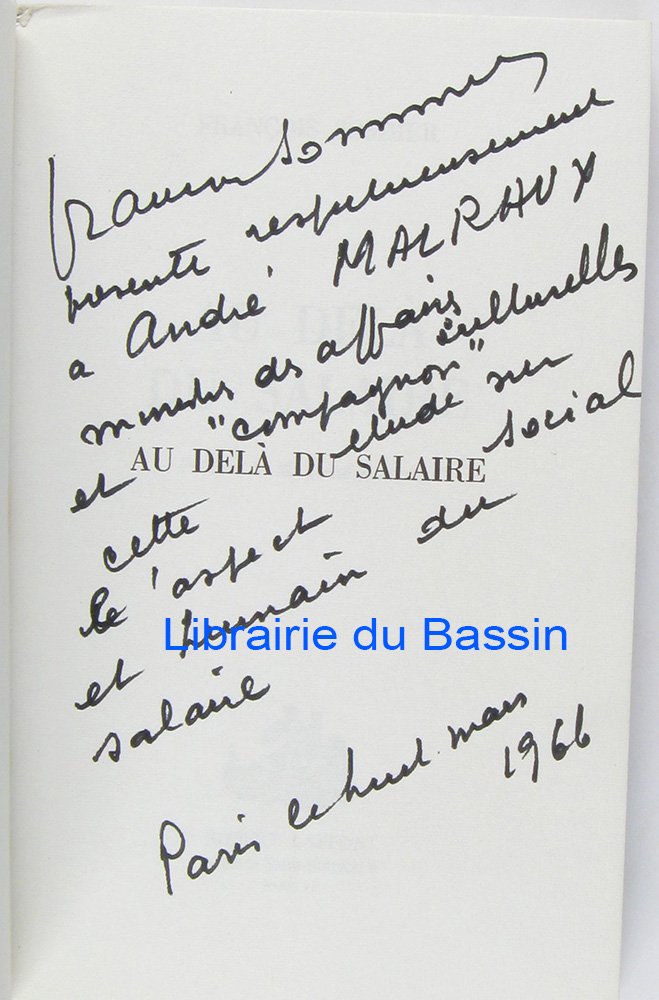 François Sommer
présente respectueusement
a André MALRAUX
ministre des affaires culturelles
et "compagnon"
cette étude sur
AU DELÀ DU SALAIRE
l'aspect social
et humain du
salaire
Librairie du Bassin
Paris le huit mars
1966